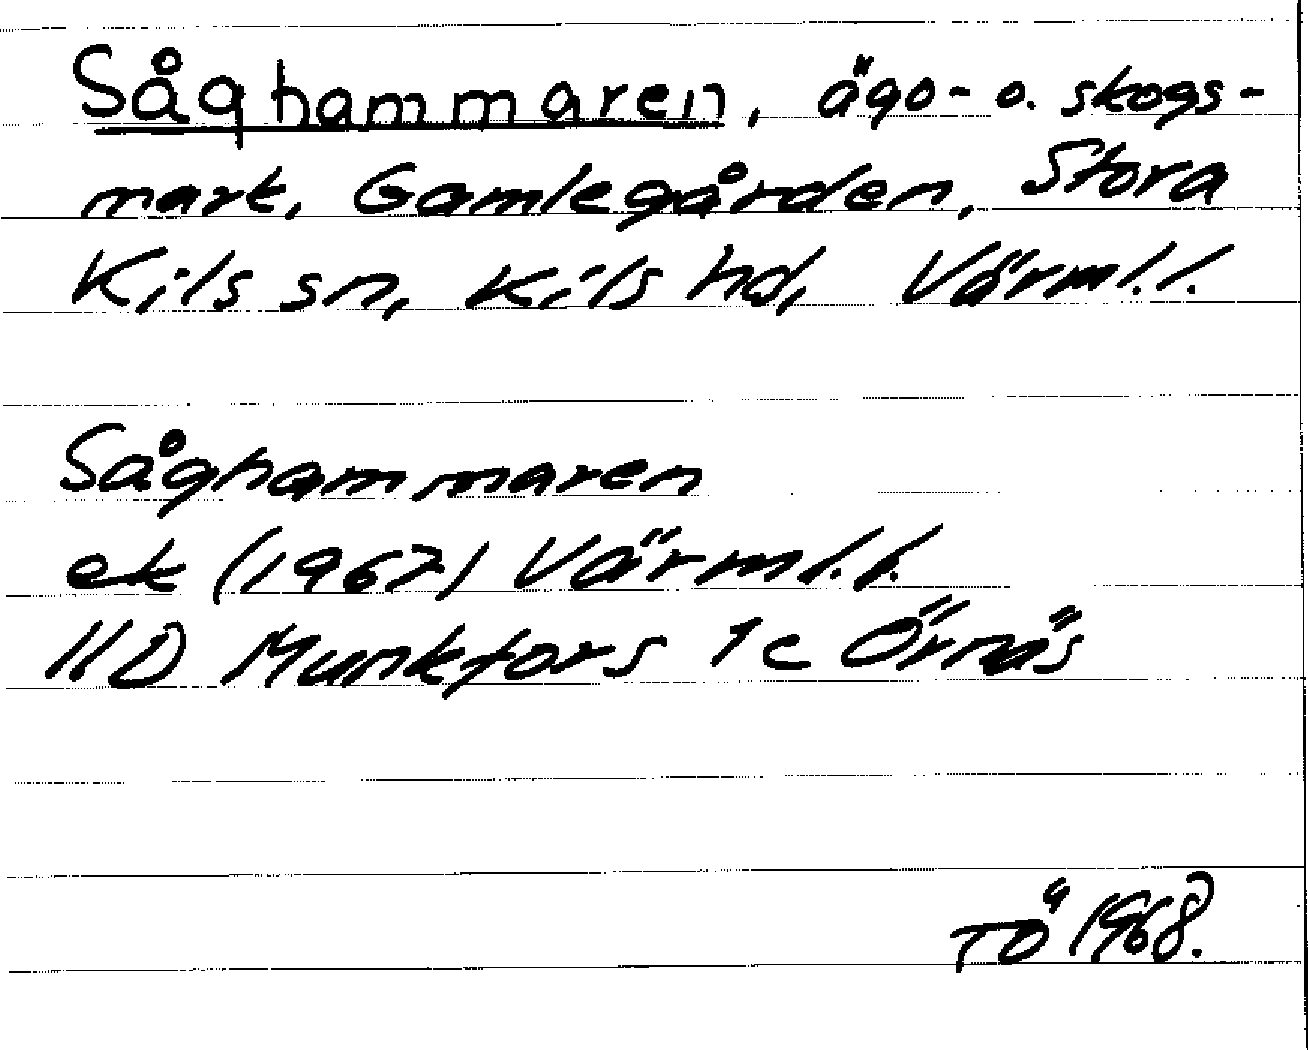 Såghammaren, ägo- o. skogs-
mark, Gamlegården, Stora
Kils sn, Kils hd, Värml. l.
Såghammaren
ek (1967) Värml. l.
11D Munkfors 1c Örnäs
TÖ 1968.